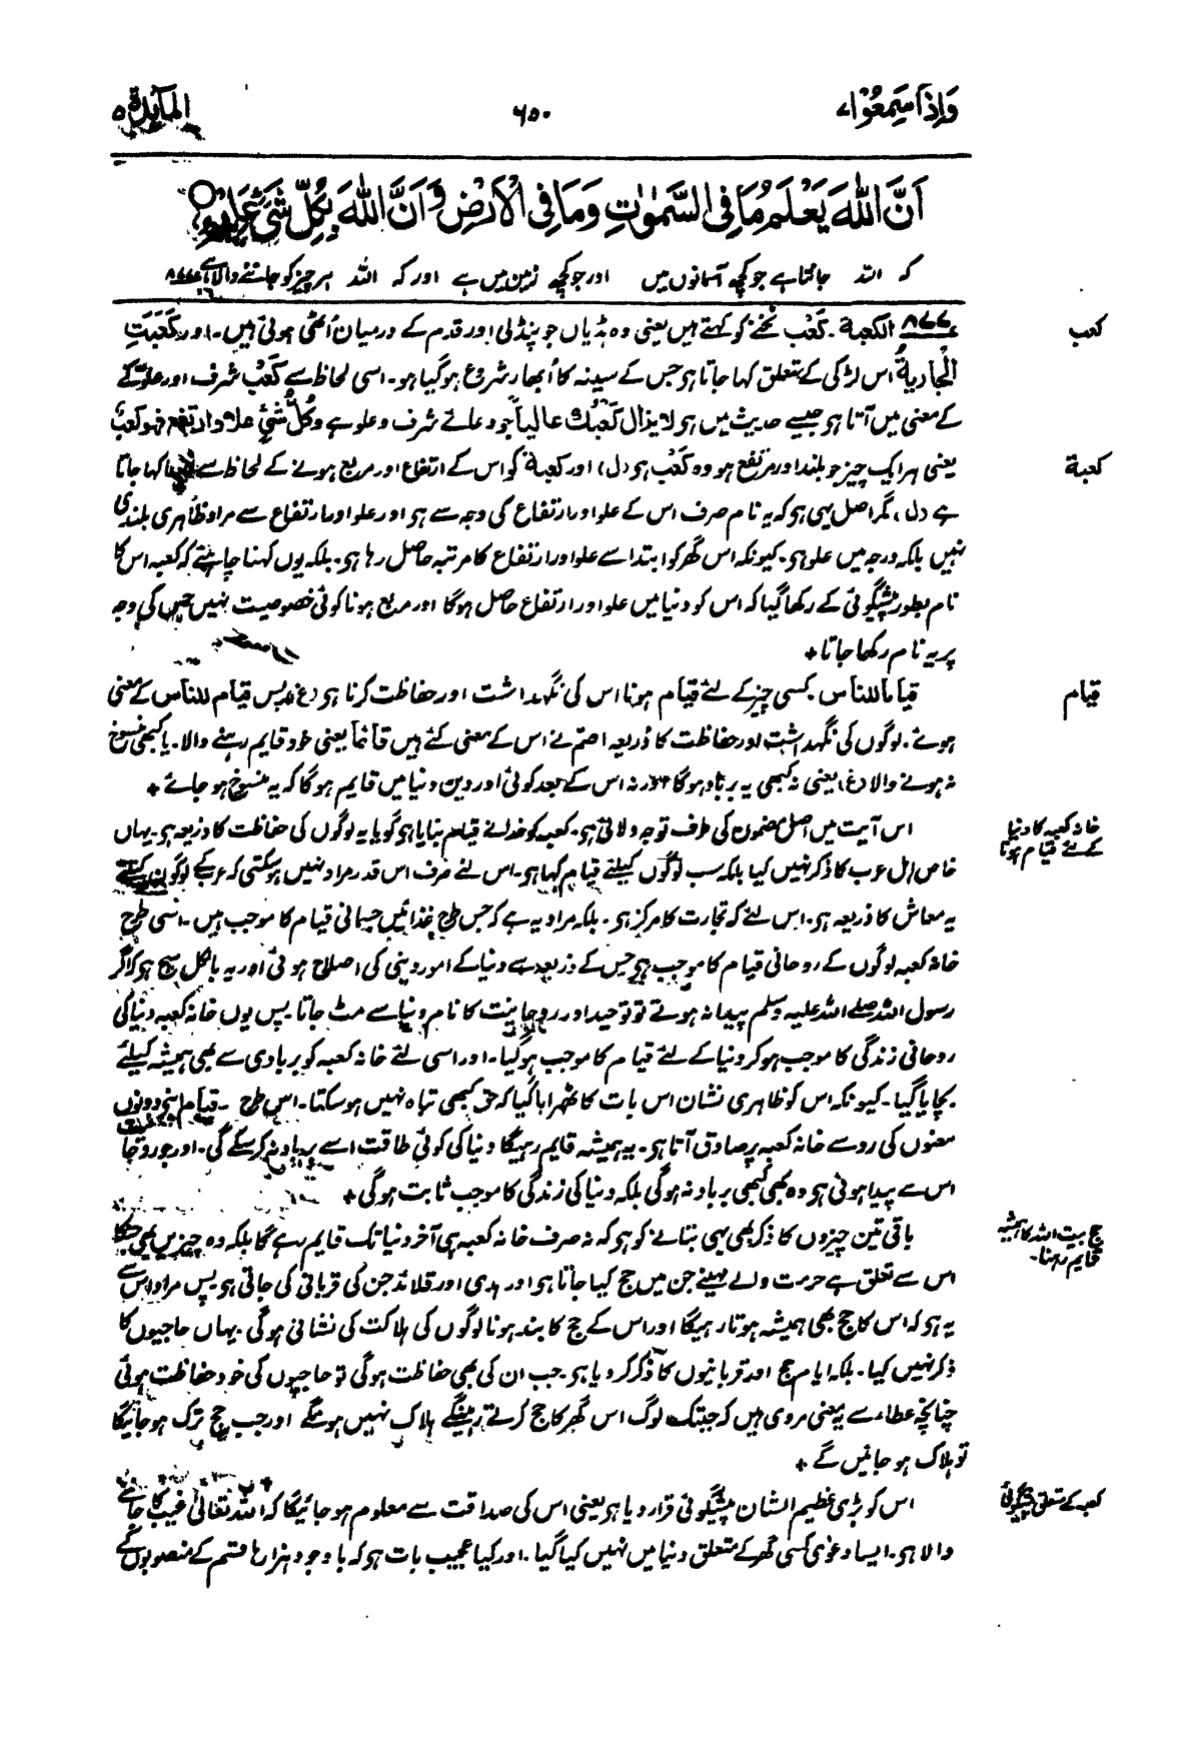 وَاِذَا سَمِعُوْا ٧
٦٥٠
المآئدة ٥
اَنَّ اللّٰهَ يَعْلَمُ مَا فِى السَّمٰوٰتِ وَمَا فِى الْاَرْضِ وَ اَنَّ اللّٰهَ بِكُلِّ شَىْءٍ عَلِيْمٌ
کہ اللہ جانتا ہے جو کچھ آسمانوں میں اور جو کچھ زمین میں ہے اور کہ اللہ ہر چیز کو جاننے والا ہے ٨٧٧
کعب
٨٧٧ الکعبة۔ کَعْب ٹخنے کو کہتے ہیں یعنی وہ ہڈیاں جو پنڈلی اور قدم کے درمیان اُٹھی ہوئی ہیں۔ اور کَعَبَتِ
الْجَارِیةُ اس لڑکی کے متعلق کہا جاتا ہو جس کے سینہ کا اُبھار شروع ہو گیا ہو۔ اسی لحاظ سے کَعْبٌ شرف اور علو کے
کے معنی میں آتا ہو جیسے حدیث میں ہو لا یزال کعبك عالیاً جو دعائے شرف و علو ہے وکلُّ شئٍ علا وارتفع فہو کعب
کعبة
یعنی ہر ایک چیز جو بلند اور مرتفع ہو وہ کعب ہو (ل) اور کعبة کو اس کے ارتفاع اور مربع ہونے کے لحاظ سے کہا جاتا
ہے (ل) مگر اصل یہی ہو کہ یہ نام صرف اس کے علو اور ارتفاع کی وجہ سے ہو اور علو اور ارتفاع سے مراد ظاہری بلندی
نہیں بلکہ درجہ میں علو ہو۔ کیونکہ اس گھر کو ابتدا سے علو اور ارتفاع کا مرتبہ حاصل رہا ہو۔ بلکہ یوں کہنا چاہئے کہ کعبہ اس کا
نام بطور پیشگوئی کے رکھا گیا کہ اس کو دنیا میں علو اور ارتفاع حاصل ہوگا اور مربع ہونا کوئی خصوصیت نہیں جس کی وجہ
پر یہ نام رکھا جاتا +
قیام
قیاماً للناس۔ کسی چیز کے لئے قیام ہونا اس کی نگہداشت اور حفاظت کرنا ہو (غ) پس قیام للناس کے معنی
ہوئے۔ لوگوں کی نگہداشت اور حفاظت کا ذریعہ اصم نے اس کے معنی کئے ہیں قائماً یعنی خود قایم رہنے والا۔ یا کبھی منسوخ
نہ ہونے والا (غ) یعنی نہ کبھی یہ برباد ہوگا اور نہ اس کے بعد کوئی اور دین دنیا میں قایم ہوگا کہ یہ منسوخ ہو جائے +
خانہ کعبہ کا دنیا
کے لئے قیام ہونا
اس آیت میں اصل مضمون کی طرف توجہ دلائی ہو۔ کعبہ کو خدا نے قیام بنایا ہو گویا یہ لوگوں کی حفاظت کا ذریعہ ہو۔ یہاں
خاص اہل عرب کا ذکر نہیں کیا بلکہ سب لوگوں کیلئے قیام کہا ہو۔ اس لئے صرف اس قدر مراد نہیں ہوسکتی کہ عرب کے لوگوں کیلئے
یہ معاش کا ذریعہ ہو۔ اس لئے کہ تجارت کا مرکز ہو۔ بلکہ مراد یہ ہے کہ جس طرح غذائیں جسمانی قیام کا موجب ہیں۔ اسی طرح
خانہ کعبہ لوگوں کے روحانی قیام کا موجب ہو جس کے ذریعہ سے دنیا کے امور دینی کی اصلاح ہوئی اور یہ بالکل سچ ہو کہ اگر
رسول اللہ صلے اللہ علیہ وسلم پیدا نہ ہوتے تو توحید اور روحانیت کا نام دنیا سے مٹ جاتا۔ پس یوں خانہ کعبہ دنیا کی
روحانی زندگی کا موجب ہو کر دنیا کے لئے قیام کا موجب ہو گیا۔ اور اسی لئے خانہ کعبہ کو بربادی سے بھی ہمیشہ کیلئے
بچایا گیا۔ کیونکہ اس کو ظاہری نشان اس بات کا ٹھہرایا گیا کہ حق کبھی تباہ نہیں ہو سکتا۔ اس طرح۔ قیام اپنی دونوں
معنوں کی رو سے خانہ کعبہ پر صادق آتا ہو۔ یہ ہمیشہ قایم رہیگا دنیا کی کوئی طاقت اسے برباد نہ کر سکے گی۔ اور جو
اس سے پیدا ہوئی ہو وہ بھی کبھی برباد نہ ہو گی بلکہ دنیا کی زندگی کا موجب ثابت ہوگی +
حج بیت اللہ کا ہمیشہ
قایم رہنا۔
باقی تین چیزوں کا ذکر بھی یہی بتانے کو ہو کہ نہ صرف خانہ کعبہ ہی آخر دنیا تک قایم رہے گا بلکہ وہ چیزیں بھی جن کا
اس سے تعلق ہے حرمت والے مہینے جن میں حج کیا جاتا ہو اور ہدی اور قلائد جن کی قربانی کی جاتی ہو۔ پس مراد اس سے
یہ ہو کہ اس کا حج بھی ہمیشہ ہوتا رہیگا اور اس کے حج کا بند ہونا لوگوں کی ہلاکت کی نشانی ہوگی۔ یہاں حاجیوں کا
ذکر نہیں کیا۔ بلکہ ایام حج اور قربانیوں کا ذکر کر دیا ہو۔ جب ان کی بھی حفاظت ہوگی تو حاجیوں کی خود حفاظت ہوئی
چنانچہ عطاء سے یہ معنی مروی ہیں کہ جبتک لوگ اس گھر کا حج کرتے رہینگے ہلاک نہیں ہونگے اور جب حج ترک ہو جائیگا
تو ہلاک ہو جائیں گے +
کعبہ کے متعلق پیشگوئی
اس کو بڑی عظیم الشان پیشگوئی قرار دیا ہو یعنی اس کی صداقت سے معلوم ہو جائیگا کہ اللہ تعالیٰ غیب کا جاننے
والا ہو۔ ایسا دعویٰ کسی گھر کے متعلق دنیا میں نہیں کیا گیا۔ اور کیا عجیب بات ہو کہ باوجود ہزار ہا قسم کے منصوبوں کے